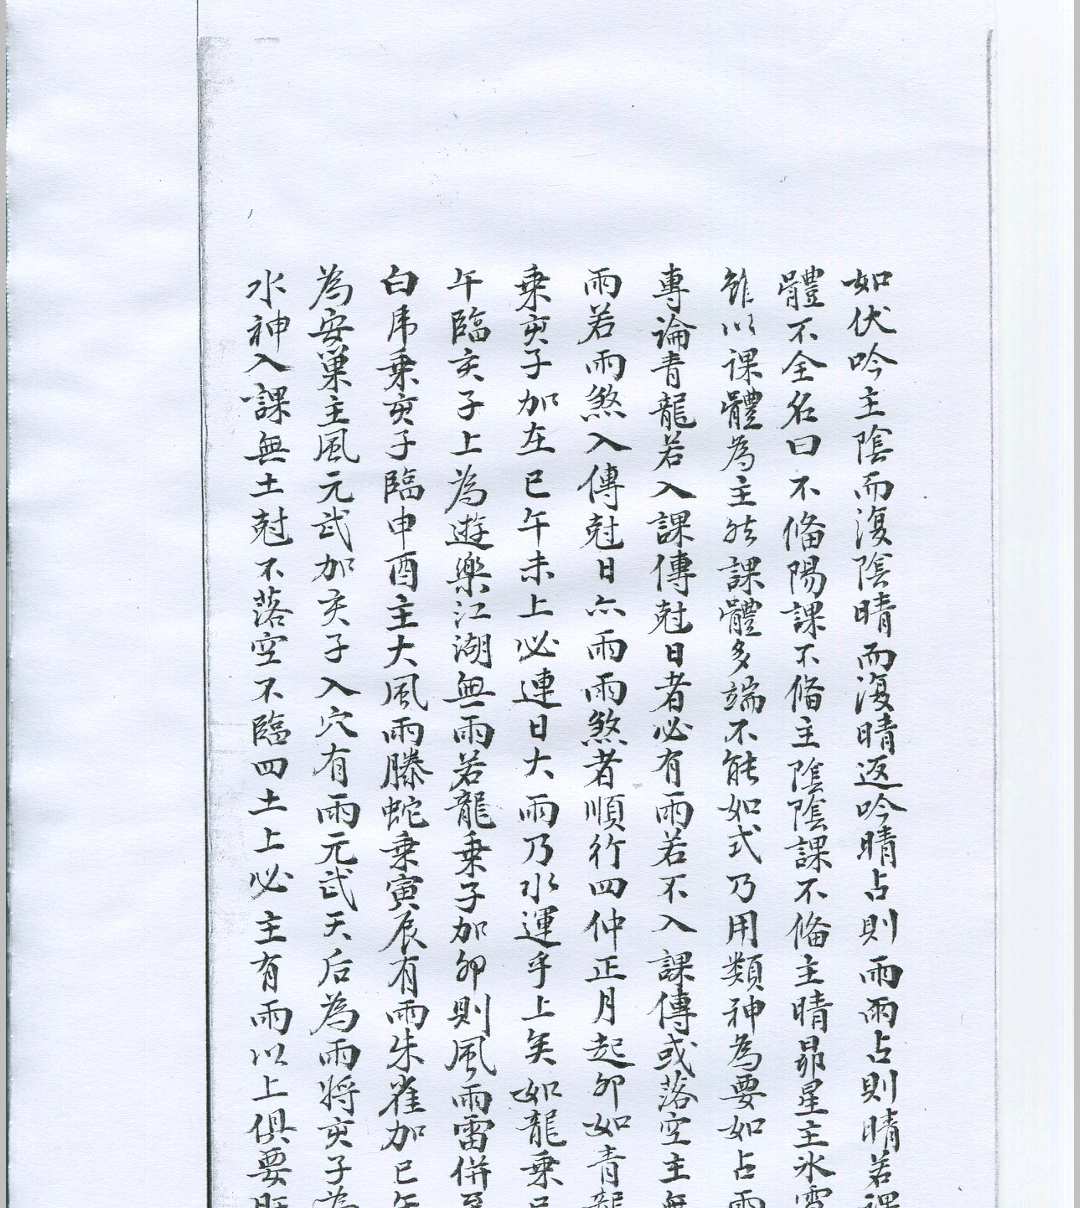 如伏吟主陰而復陰晴而復晴返吟晴占則雨雨占則晴若課
體不全名曰不俻陽課不俻主陰陰課不俻主晴昴星主氷雪
雖以課體為主然課體多端不能如式乃用類神為要如占雨
專論青龍若入課傳尅日者必有雨若不入課傳或落空主無
雨若雨煞入傳尅日亦雨雨煞者順行四仲正月起卯如青龍
乗亥子加在巳午未上必連日大雨乃水運乎上矣如龍乗
午臨亥子上為遊樂江湖無雨若龍乗子加卯則風雨雷併至
白虎乗亥子臨申酉主大風雨螣蛇乗寅辰有雨朱雀加巳午
為安巢主風元武加亥子入穴有雨元武天后為雨將亥子為
水神入課無土尅不落空不臨四土上必主有雨以上俱要旺